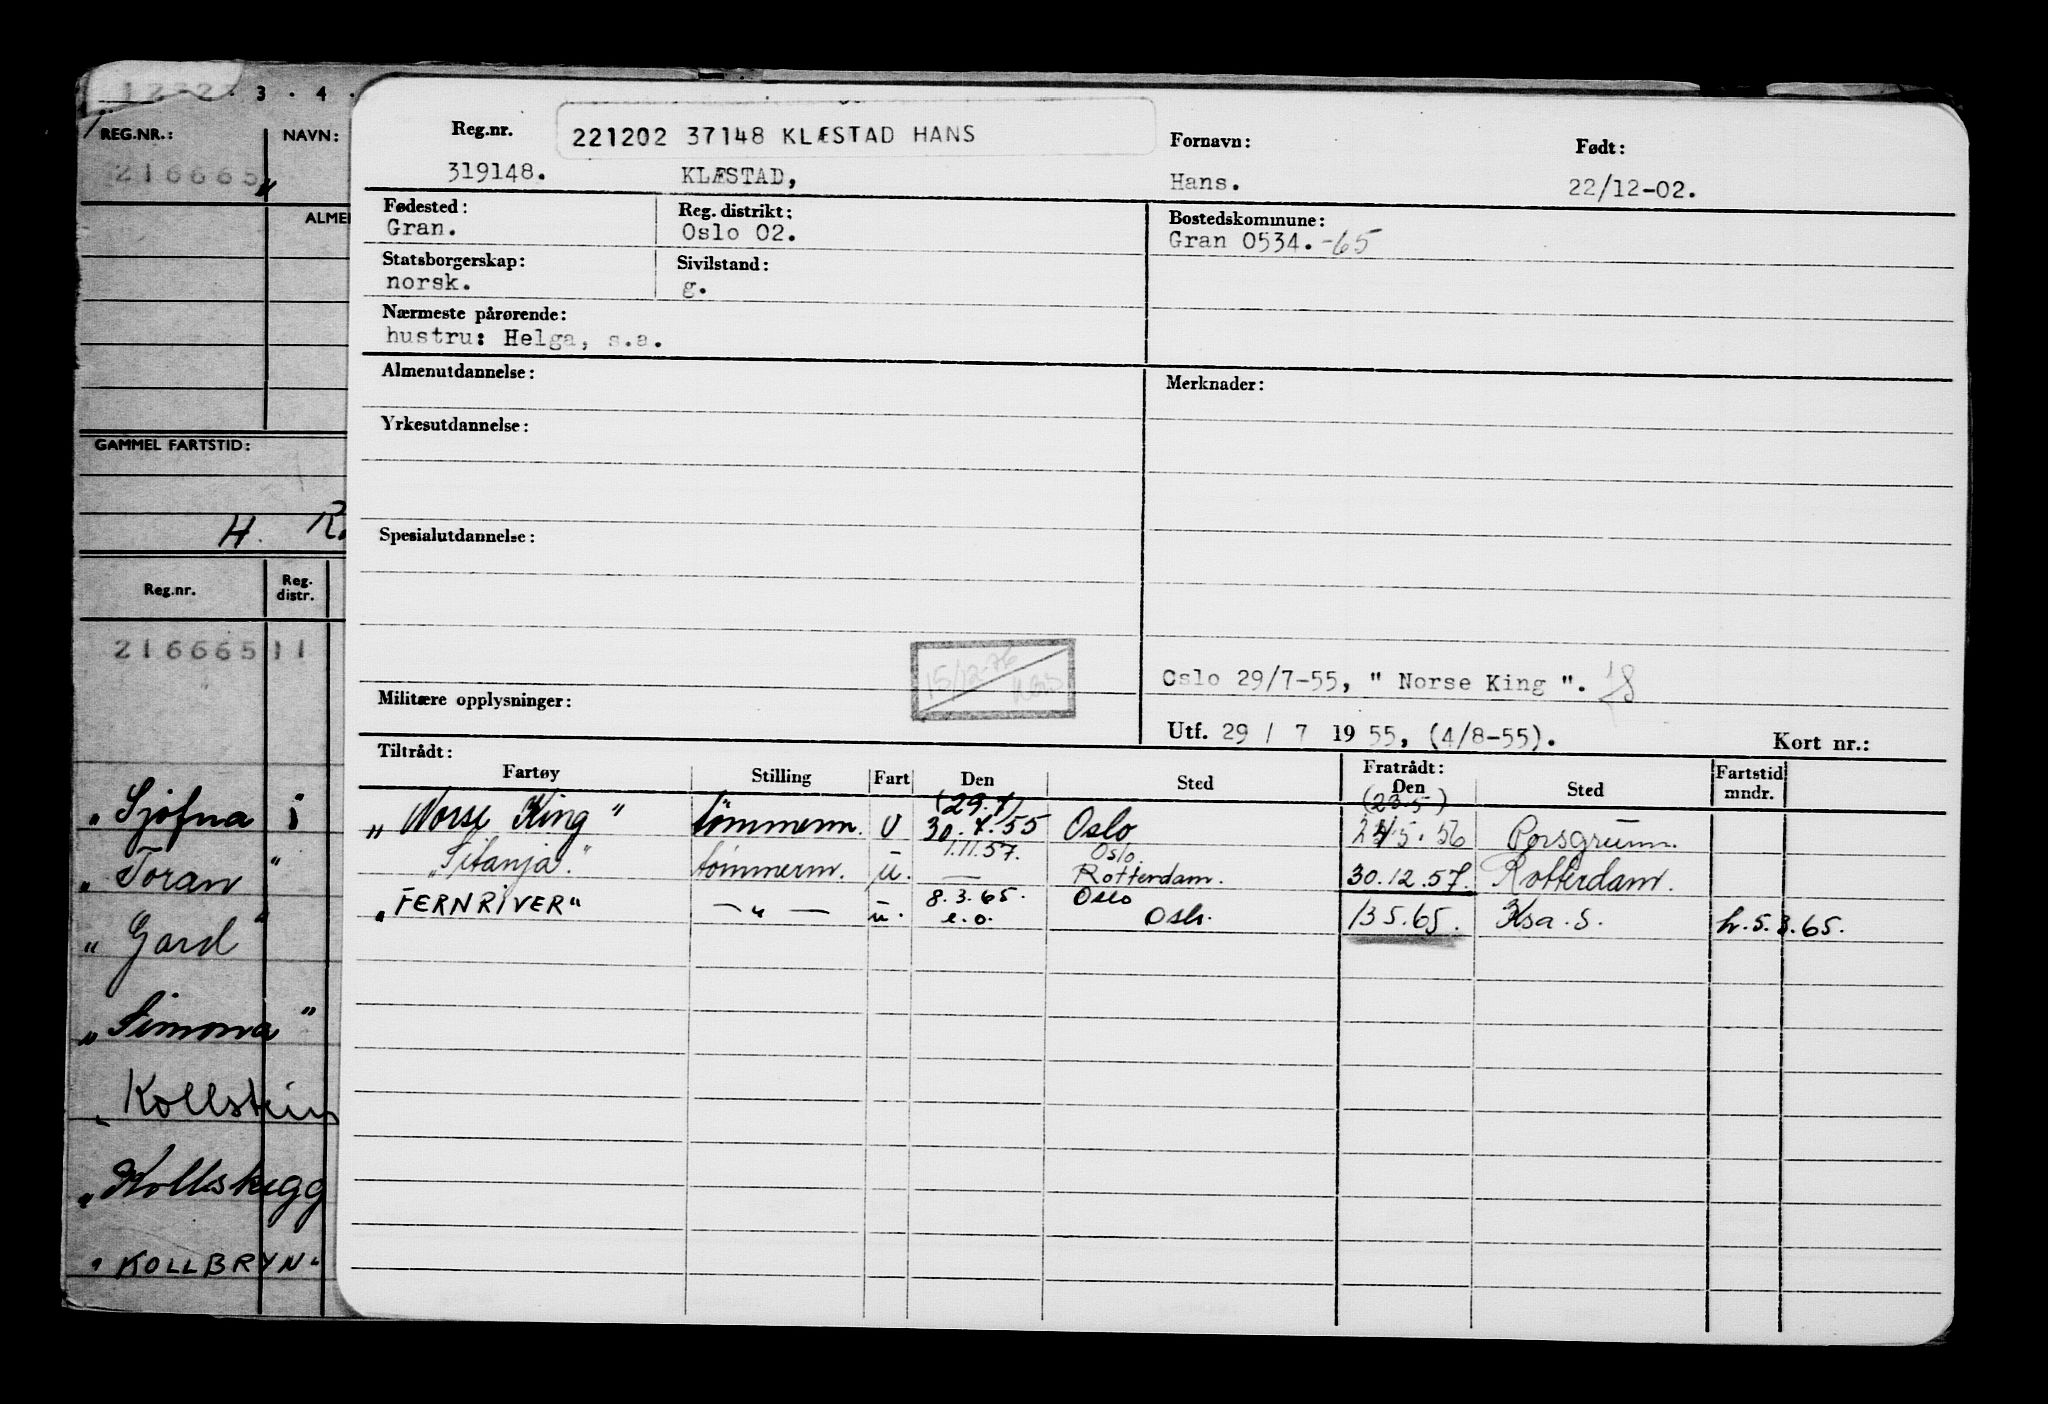 1 2 2 · 3 · 4 ·
REG.NR.: NAVN:
216665
ALMEN
GAMMEL FARTSTID:
H.
Reg.nr. Reg. distr.
216665 11
"Sjofna"
"Toran"
"Gard"
"Simona"
Kollstein
"Kollskegg
"KOLLBRYN"
221202 37148 KLÆSTAD HANS
Reg.nr. Fornavn: Født:
319148. KLÆSTAD, Hans. 22/12-02.
Fødested: Reg. distrikt: Bostedskommune:
Gran. Oslo 02. Gran 0534. -65
Statsborgerskap: Sivilstand:
norsk. g.
Nærmeste pårørende:
hustru: Helga, s.a.
Almenutdannelse: Merknader:
Yrkesutdannelse:
Spesialutdannelse:
15/12-76
Oslo 29/7-55, " Norse King ".
Militære opplysninger:
Utf. 29 / 7 1955, (4/8-55). Kort nr.:
Tiltrådt: Fratrådt:
Fartøy Stilling Fart Den Sted Den Sted Fartstid mndr.
(29.7) (23.5)
"Norse King" tömmerm. U 30.7.55 Oslo 24/5.56 Porsgrunn.
1.11.57. Oslo.
"Sitanja." tömmerm. u. — Rotterdam. 30.12.57. Rotterdam.
8.3.65. Oslo
"FERNRIVER" — " — u. e.o. Oslo. 13.5.65. Ksa. S. h.5.3.65.